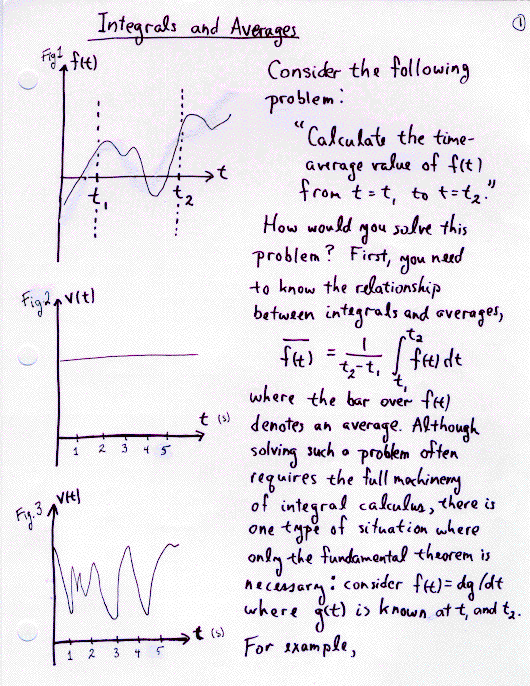 Integrals and Averages
1
Fig1
f(t)
t
t₁
t₂
Consider the following
problem:
"Calculate the time-
average value of f(t)
from t=t₁ to t=t₂."
How would you solve this
problem? First, you need
to know the relationship
between integrals and averages,
f(t)‾ = 1/(t₂-t₁) ∫_{t₁}^{t₂} f(t) dt
where the bar over f(t)
denotes an average. Although
solving such a problem often
requires the full machinery
of integral calculus, there is
one type of situation where
only the fundamental theorem is
necessary: consider f(t)=dg/dt
where g(t) is known at t₁ and t₂.
For example,
Fig.2
v(t)
t (s)
1 2 3 4 5
Fig.3
v(t)
t (s)
1 2 3 4 5